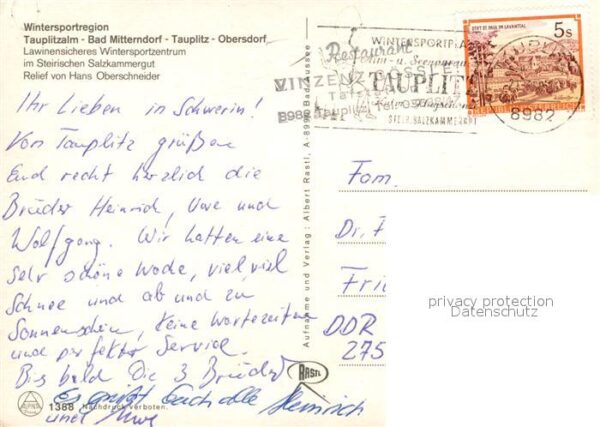 Wintersportregion
Tauplitzalm - Bad Mitterndorf - Tauplitz - Obersdorf
Lawinensicheres Wintersportzentrum
im Steirischen Salzkammergut
Relief von Hans Oberschneider
Ihr Lieben in Schwerin!
Von Tauplitz grüßen
Euch recht herzlich die
Brüder Heinrich, Uwe und
Wolfgang. Wir hatten eine
sehr schöne Woche, viel viel
Schnee und ab und zu
Sonnenschein, keine Wartezeiten
und perfekter Service.
Bis bald Die 3 Brüder
Es grüßt Euch alle Heinrich
und Uwe
1388 Nachdruck verboten.
Aufnahme und Verlag: Albert Rastl, A-8990 Bad Aussee
RASTL
WINTERSPORTPL
Restaurant
VINZENZ
TAUPLITZ
STEIR. SALZKAMMERGUT
8982
STIFT ST. PAUL IM LAVANTTAL
5s
REPUBLIK ÖSTERREICH
Fam.
Dr. F
Frie
DDR
275
privacy protection
Datenschutz